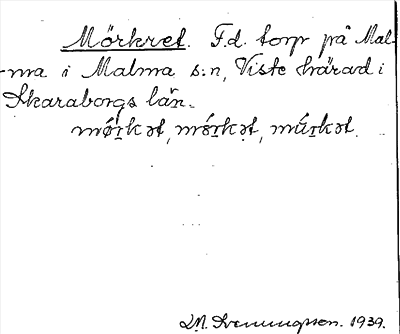 Mörkret. F.d. torp på Mal-
-ma i Malma s:n, Viste härad i
Skaraborgs län.
mö́rkət, mö́rkət, mū́rkət.
1939.